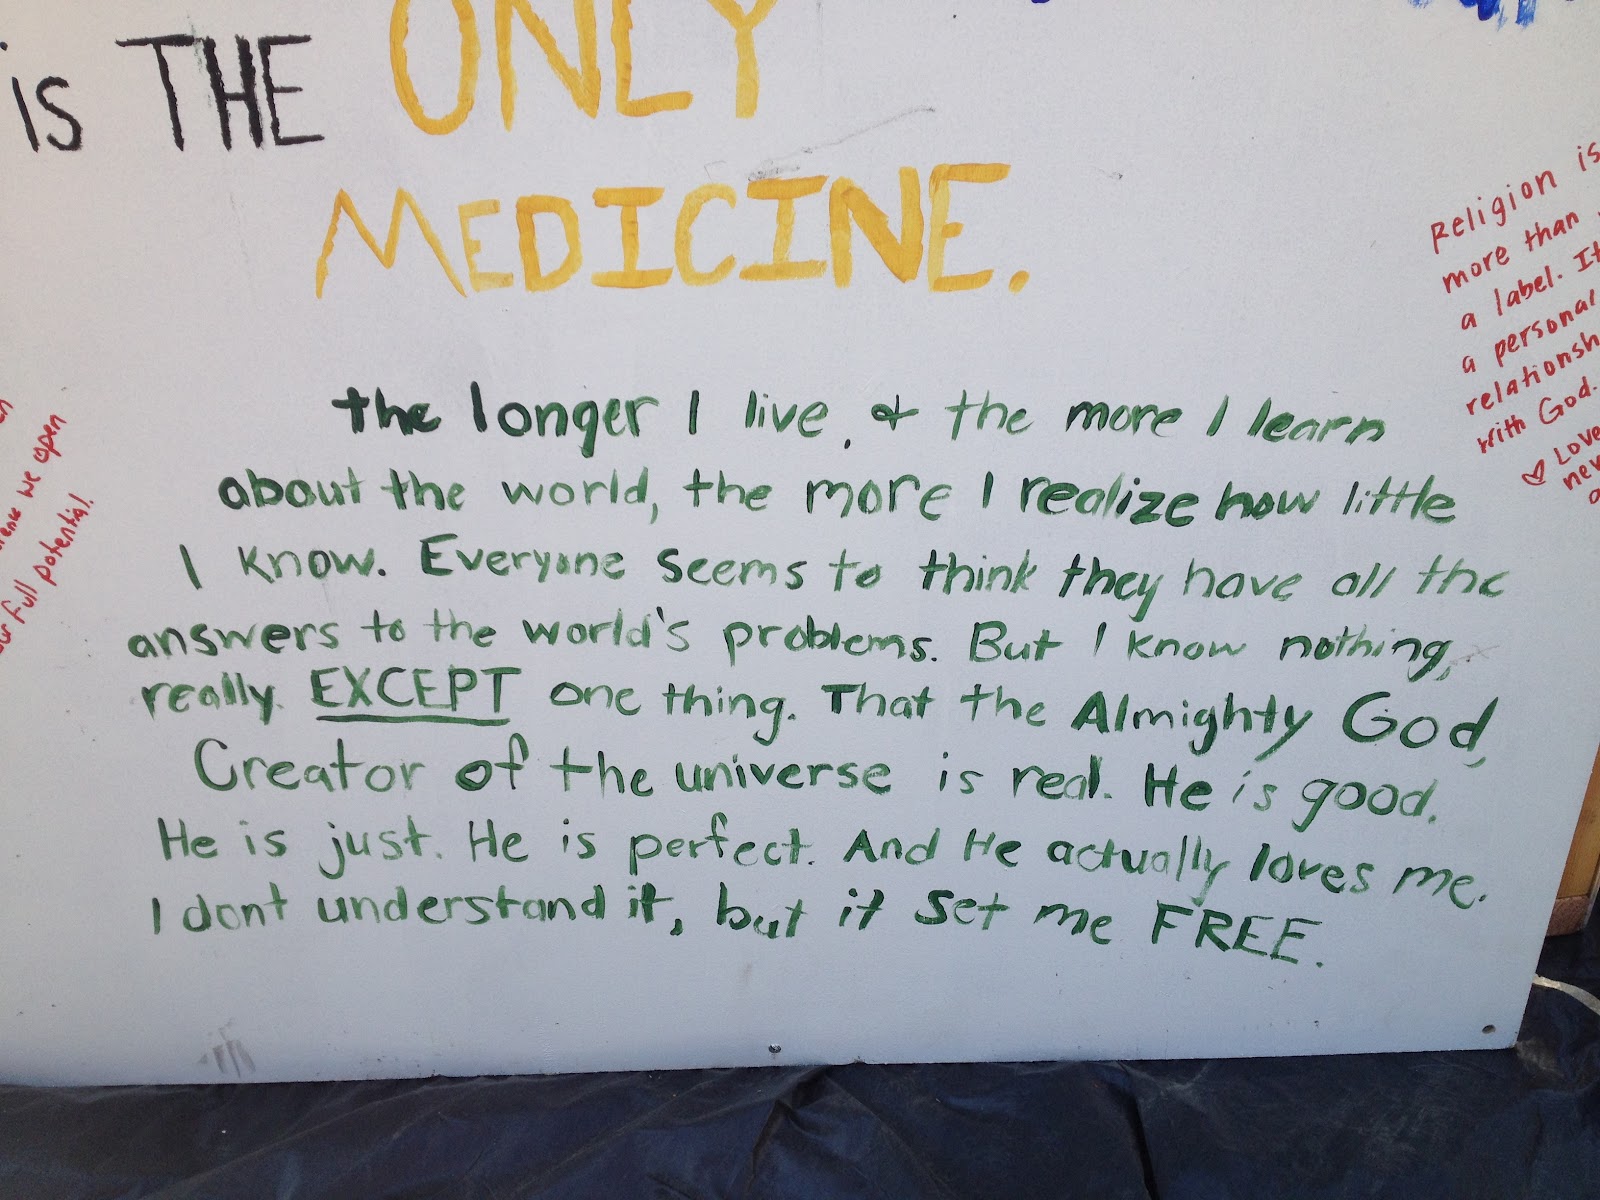 is THE ONLY
MEDICINE.
the longer I live, & the more I learn
about the world, the more I realize how little
I know. Everyone seems to think they have all the
answers to the world's problems. But I know nothing,
really. EXCEPT one thing. That the Almighty God,
Creator of the universe is real. He is good.
He is just. He is perfect. And He actually loves me.
I dont understand it, but it set me FREE.
Religion is
more than
a label. It
a personal
with God.
♡ Love
we open
full potential.